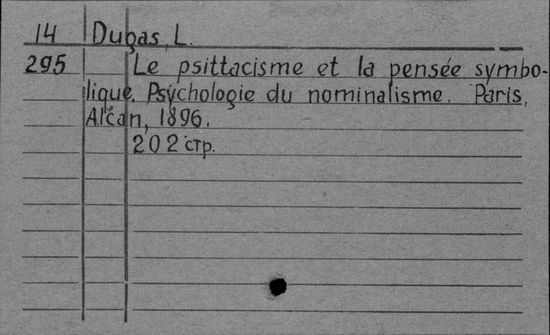 14 Dugas, L.
295 Le psittacisme et la pensée symbo-
lique. Psychologie du nominalisme. Paris,
Alcan, 1896.
202 стр.